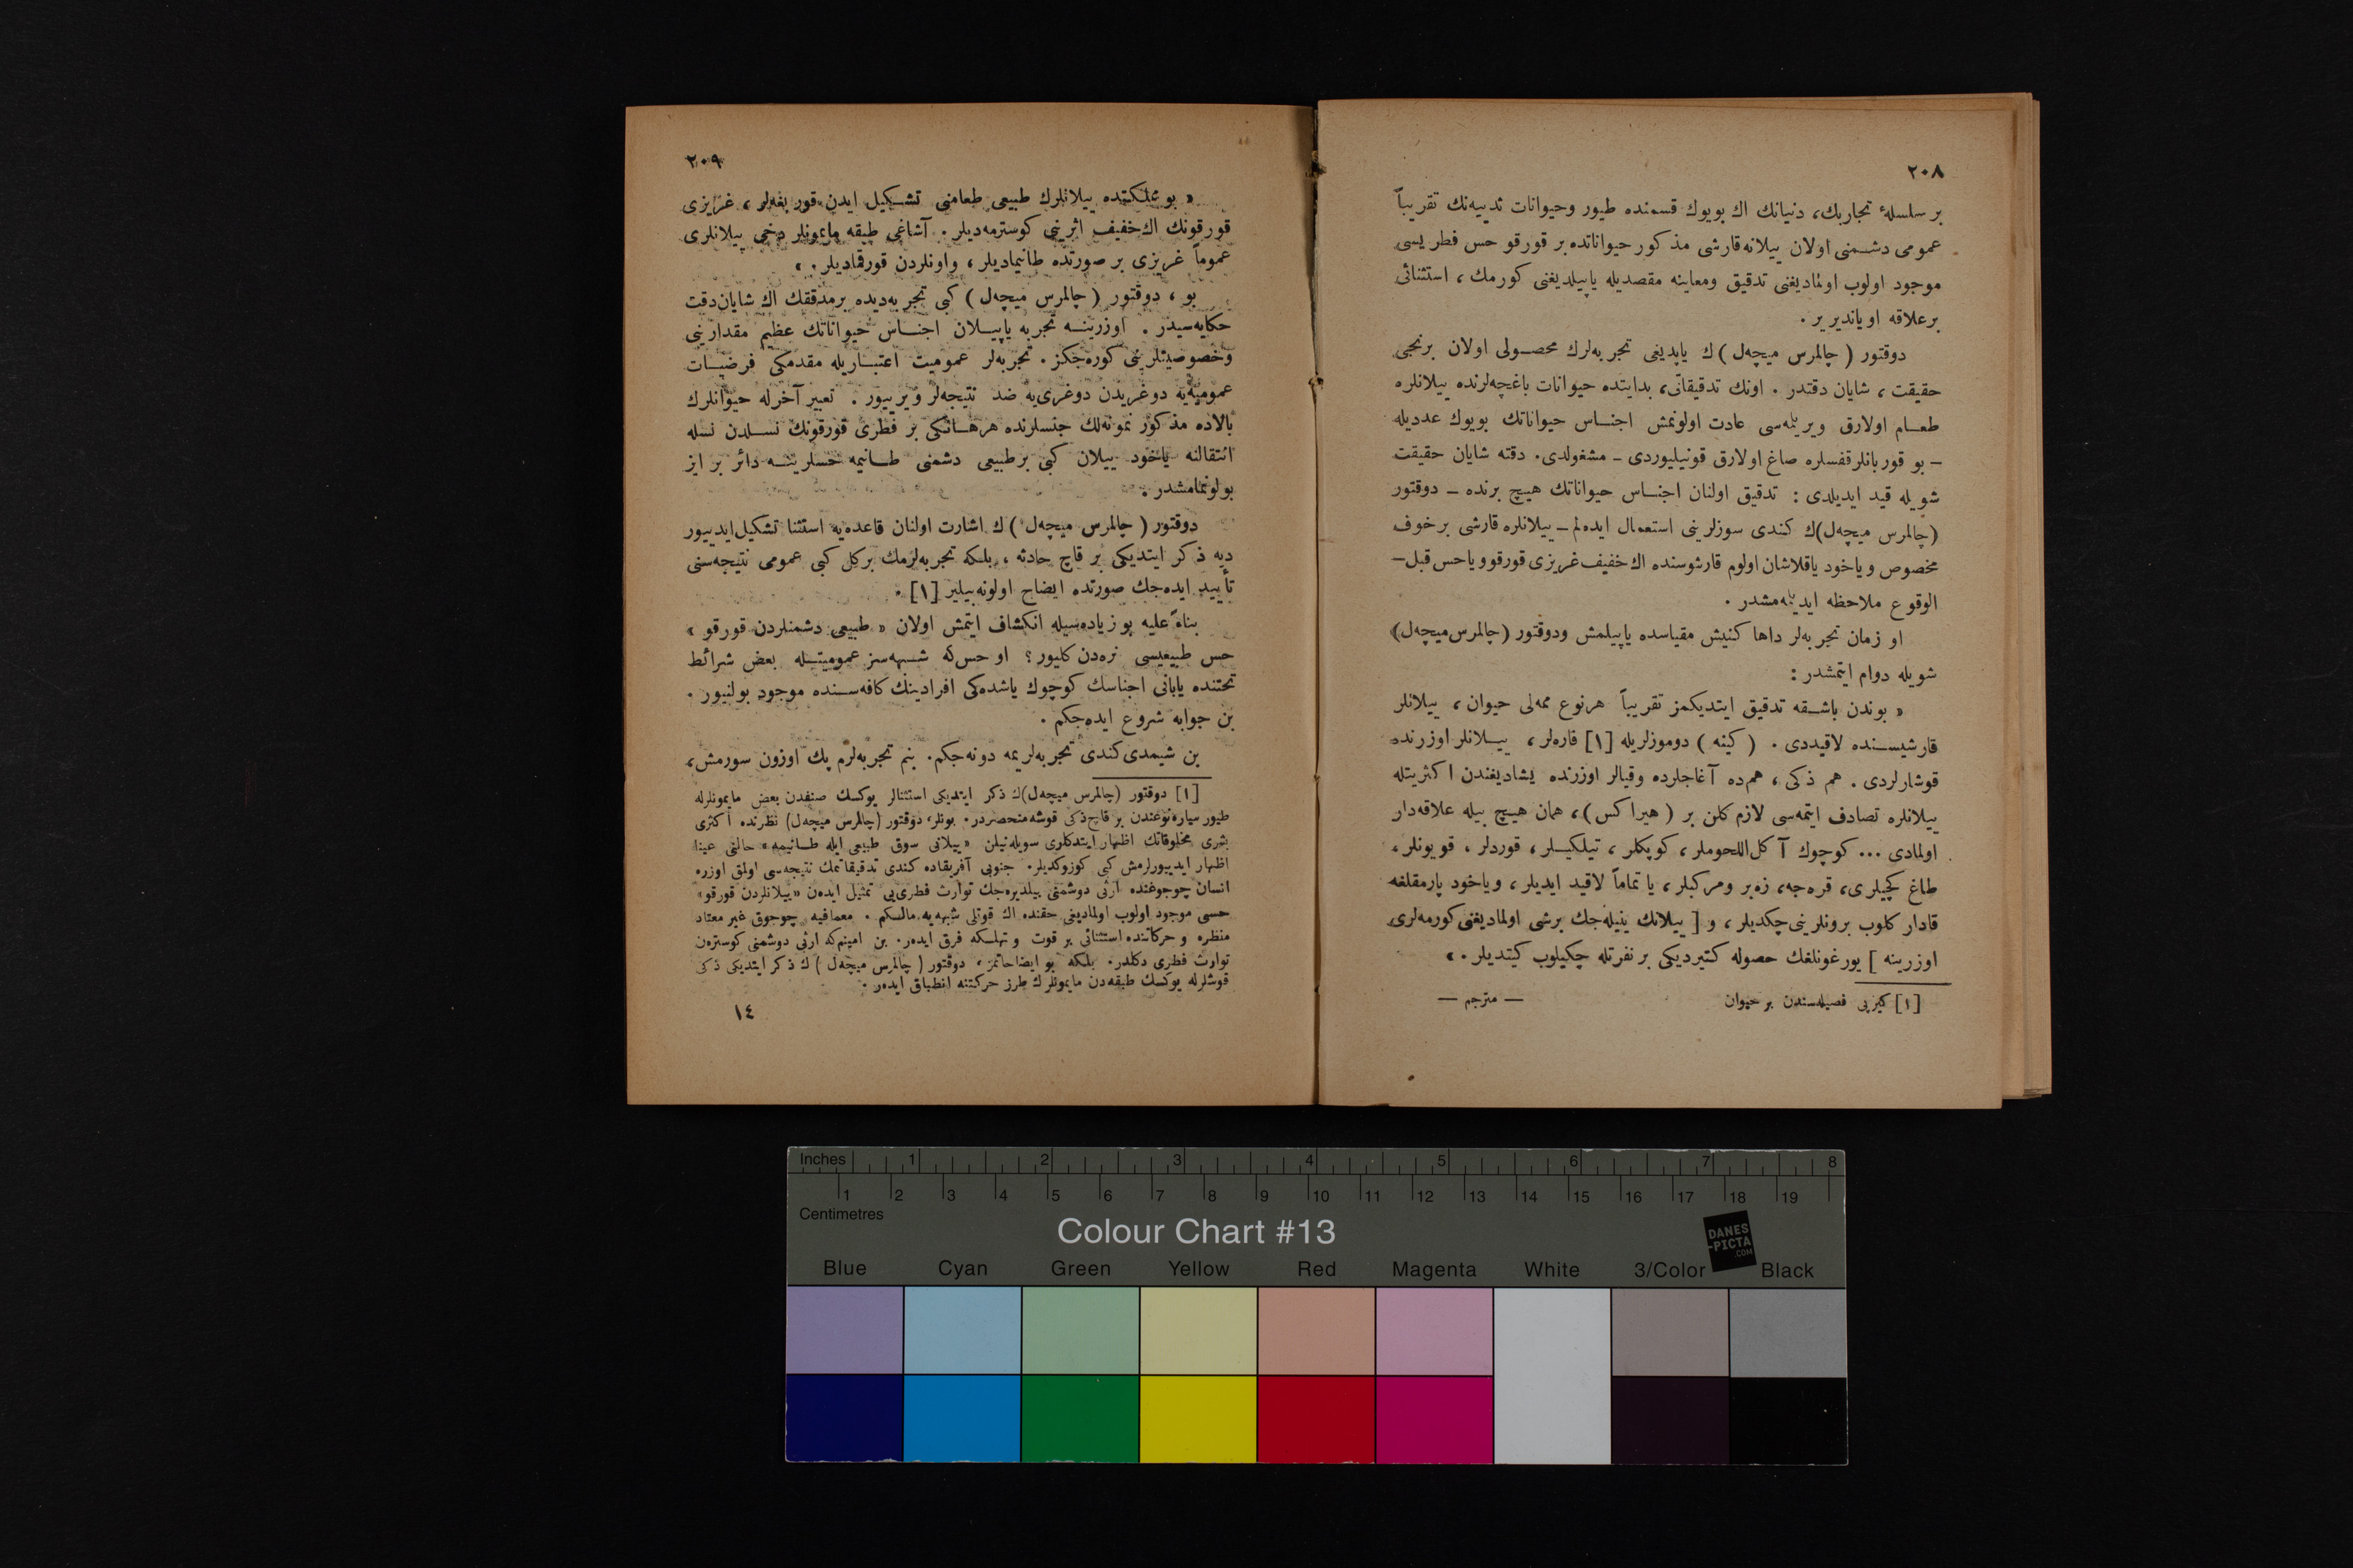 ٢٠٨
بر سلسلهٔ تجاربك، دنیانك اك بویوك قسمنده طیور وحیوانات ثدییه‌نك تقریباً
عمومی دشمنی اولان ییلانه قارشی مذكور حیواناتده بر قورقو حس فطریسی
موجود اولوب اولمادیغنی تدقیق ومعاینه مقصدیله یاپیلدیغنی كورمك، استثنائی
برعلاقه اویاندیریر.
دوقتور (چالمرس میچه‌ل)ك یاپدیغی تجربه‌لرك محصولی اولان برنجی
حقیقت، شایان دقتدر. اونك تدقیقاتی، بدایتده حیوانات باغچه‌لرنده ییلانلره
طعام اولارق ویریلمه‌سی عادت اولونمش اجناس حیواناتك بویوك عددیله
– بو قوربانلر قفسلره صاغ اولارق قونیلیوردی – مشغولدی. دقته شایان حقیقت
شویله قید ایدیلدی: تدقیق اولنان اجناس حیواناتك هیچ برنده – دوقتور
(چالمرس میچه‌ل)ك كندی سوزلرینی استعمال ایده‌لم – ییلانلره قارشی بر خوف
مخصوص ویاخود یاقلاشان اولوم قارشوسنده اك خفیف غریزی قورقو ویا حس قبل–
الوقوع ملاحظه ایدیله‌مشدر.
او زمان تجربه‌لر داها كنیش مقیاسده یاپیلمش ودوقتور (چالمرس میچه‌ل)
شویله دوام ایتمشدر:
« بوندن باشقه تدقیق ایتدیكمز تقریباً هرنوع ممه‌لی حیوان، ییلانلر
قارشیسنده لاقیددی. (كینه) دوموزلریله [١] فاره‌لر، ییلانلر اوزرنده
قوشارلردی. هم ذكی، هم‌ده آغاجلرده وقیالر اوزرنده یشادیغندن اكثریتله
ییلانلره تصادف ایتمه‌سی لازم كلن بر (هیراكس)، همان هیچ بیله علاقه‌دار
اولمادی ... كوچوك آكل‌اللحوملر، كوپكلر، تیلكیلر، قوردلر، قویونلر،
طاغ كچیلری، قره‌جه، زه‌بر ومركبلر، یا تماماً لاقید ایدیلر، ویاخود پارمقلغه
قادار كلوب برونلرینی چكدیلر، و [ ییلانك ینیله‌جك برشی اولمادیغنی كورمه‌لری
اوزرینه ] یورغونلغك حصوله كتیردیكی بر نفرتله چكیلوب كیتدیلر.»
[١] كیرپی فصیله‌سندن بر حیوان — مترجم —
٢٠٩
« بو مملكتده ییلانلرك طبیعی طعامنی تشكیل ایدن قوربغه‌لر، غریزی
قورقونك اك خفیف اثرینی كوسترمه‌دیلر. آشاغی طبقه مایمونلر دخی ییلانلری
عموماً غریزی بر صورتده طانیمادیلر، واونلردن قورقمادیلر.»
بو، دوقتور (چالمرس میچه‌ل) كبی تجربه‌دیده برمدققك اك شایان دقت
حكایه‌سیدر. اوزرینه تجربه یاپیلان اجناس حیواناتك عظیم مقدارینی
وخصوصیتلرینی كوره‌جكز. تجربه‌لر عمومیت اعتباریله مقدمكی فرضیات
عمومیه‌یه دوغریدن دوغری‌یه ضد نتیجه‌لر ویرییور. تعبیر آخرله حیوانلرك
بالاده مذكور نمونه‌لك جنسلرنده هرهانكی بر فطری قورقونك نسلدن نسله
انتقالنه یاخود ییلان كبی برطبیعی دشمنی طانیمه حسلرینه دائر بر ایز
بولونمامشدر.
دوقتور (چالمرس میچه‌ل)ك اشارت اولنان قاعده‌یه استثنا تشكیل ایدییور
دیه ذكر ایتدیكی بر قاچ حادثه، بلكه تجربه‌لرمك بركل كبی عمومی نتیجه‌سنی
تأیید ایده‌جك صورتده ایضاح اولونه‌بیلیر [١].
بناءً علیه بو زیاده‌سیله انكشاف ایتمش اولان « طبیعی دشمنلردن قورقو »
حس طبیعیسی نره‌دن كلیور؟ او حس كه شبهه‌سز عمومیتله بعض شرائط
تحتنده یابانی اجناسك كوچوك یاشده‌كی افرادینك كافه‌سنده موجود بولنیور.
بن جوابه شروع ایده‌جكم.
بن شیمدی كندی تجربه‌لریمه دونه‌جكم. بنم تجربه‌لرم پك اوزون سورمش،
[١] دوقتور (چالمرس میچه‌ل)ك ذكر ایتدیكی استثنالر یوكسك صنفدن بعض مایمونلرله
طیور سیاره نوعندن بر قاچ ذكی قوشه منحصردر. بونلر، دوقتور (چالمرس میچه‌ل) نظرنده اكثری
بشری مخلوقاتك اظهار ایتدكلری سویله‌نیلن « ییلانی سوق طبیعی ایله طانیمه » حالنی عینا
اظهار ایدییورلرمش كبی كوزوكدیلر. جنوبی آفریقاده كندی تدقیقاتمك نتیجه‌سی اولمق اوزره
انسان چوجوغنده ارثی دوشمنی بیلدیره‌جك توارث فطری‌یی تمثیل ایده‌ن « ییلانلردن قورقو »
حسی موجود اولوب اولمادیغی حقنده اك قوتلی شبهه‌یه مالكم. معمافیه چوجوق غیر معتاد
منظره و حركاتنده استثنائی بر قوت و تهلكه فرق ایده‌ر. بن امینم كه ارثی دوشمنی كوستره‌ن
توارث فطری دكلدر. بلكه بو ایضاحاتمز، دوقتور (چالمرس میچه‌ل)ك ذكر ایتدیكی ذكی
قوشلرله یوكسك طبقه‌دن مایمونلرك طرز حركتنه انطباق ایده‌ر.
١٤
Inches 1 2 3 4 5 6 7 8
1 2 3 4 5 6 7 8 9 10 11 12 13 14 15 16 17 18 19
Centimetres
Colour Chart #13
DANES
-PICTA
.COM
Blue Cyan Green Yellow Red Magenta White 3/Color Black